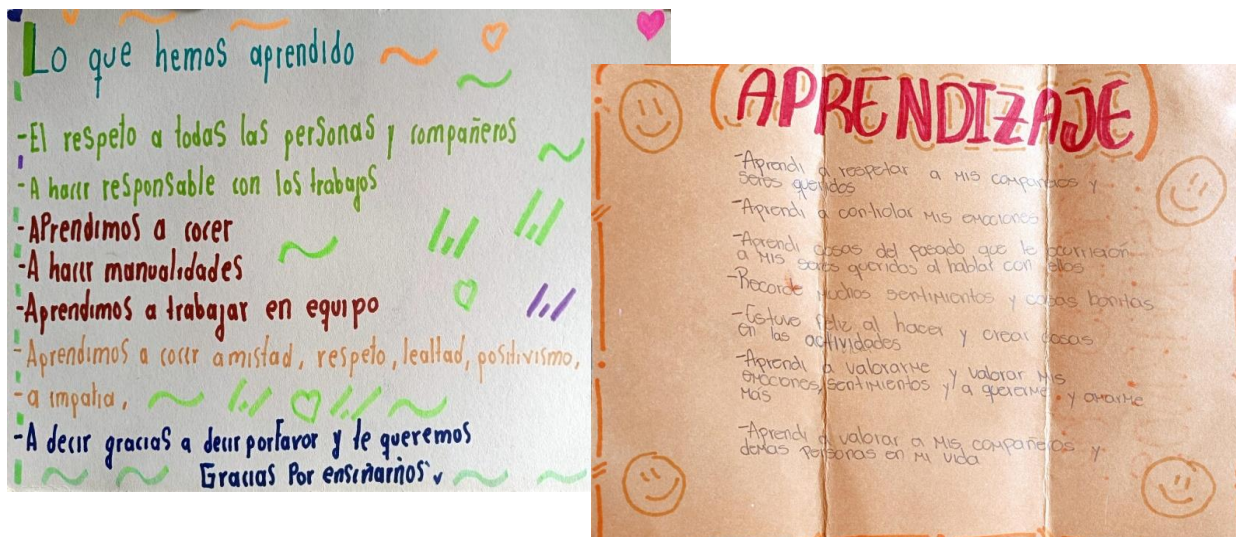 Lo que hemos aprendido
-El respeto a todas las personas y compañeros
-A hacer responsable con los trabajos
-APrendimos a cocer
-A hacer manualidades
-Aprendimos a trabajar en equipo
-Aprendimos a cocer amistad, respeto, lealtad, positivismo,
-a impatia,
-A decir gracias a decir porfavor y te queremos
Gracias Por enseñarños
(APRENDIZAJE)
-Aprendi a respetar a mis compañeros y
seres queridos
-Aprendi a controlar mis emociones
-Aprendi cosas del pasado que le ocurrieron
a mis seres queridos al hablar con ellos
-Recorde muchos sentimientos y cosas bonitas
-Estuve feliz al hacer y crear cosas
en las actividades
-Aprendi a valorarme y valorar mis
emociones, sentimientos y a quererme y amarme
más
-Aprendi a valorar a mis compañeros y
demas personas en mi vida